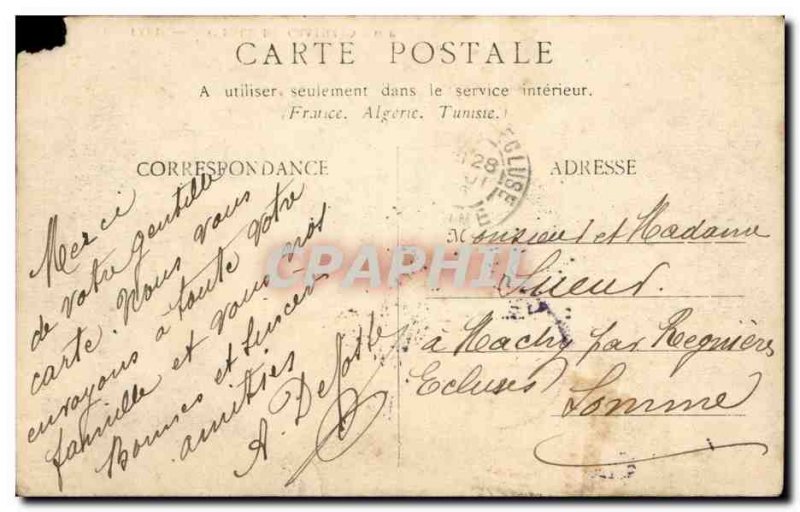 CARTE POSTALE
A utiliser seulement dans le service intérieur.
(France. Algérie. Tunisie.)
CORRESPONDANCE
Merci
de votre gentille
carte. Nous vous
envoyons à toute votre
famille et vous nos
Bonnes et Sincères
amitiés
A.
ADRESSE
Monsieur et Madame
Sueur.
à Machy par Regnière
Ecluses Somme
ECLUSE
28
CPAPHIL